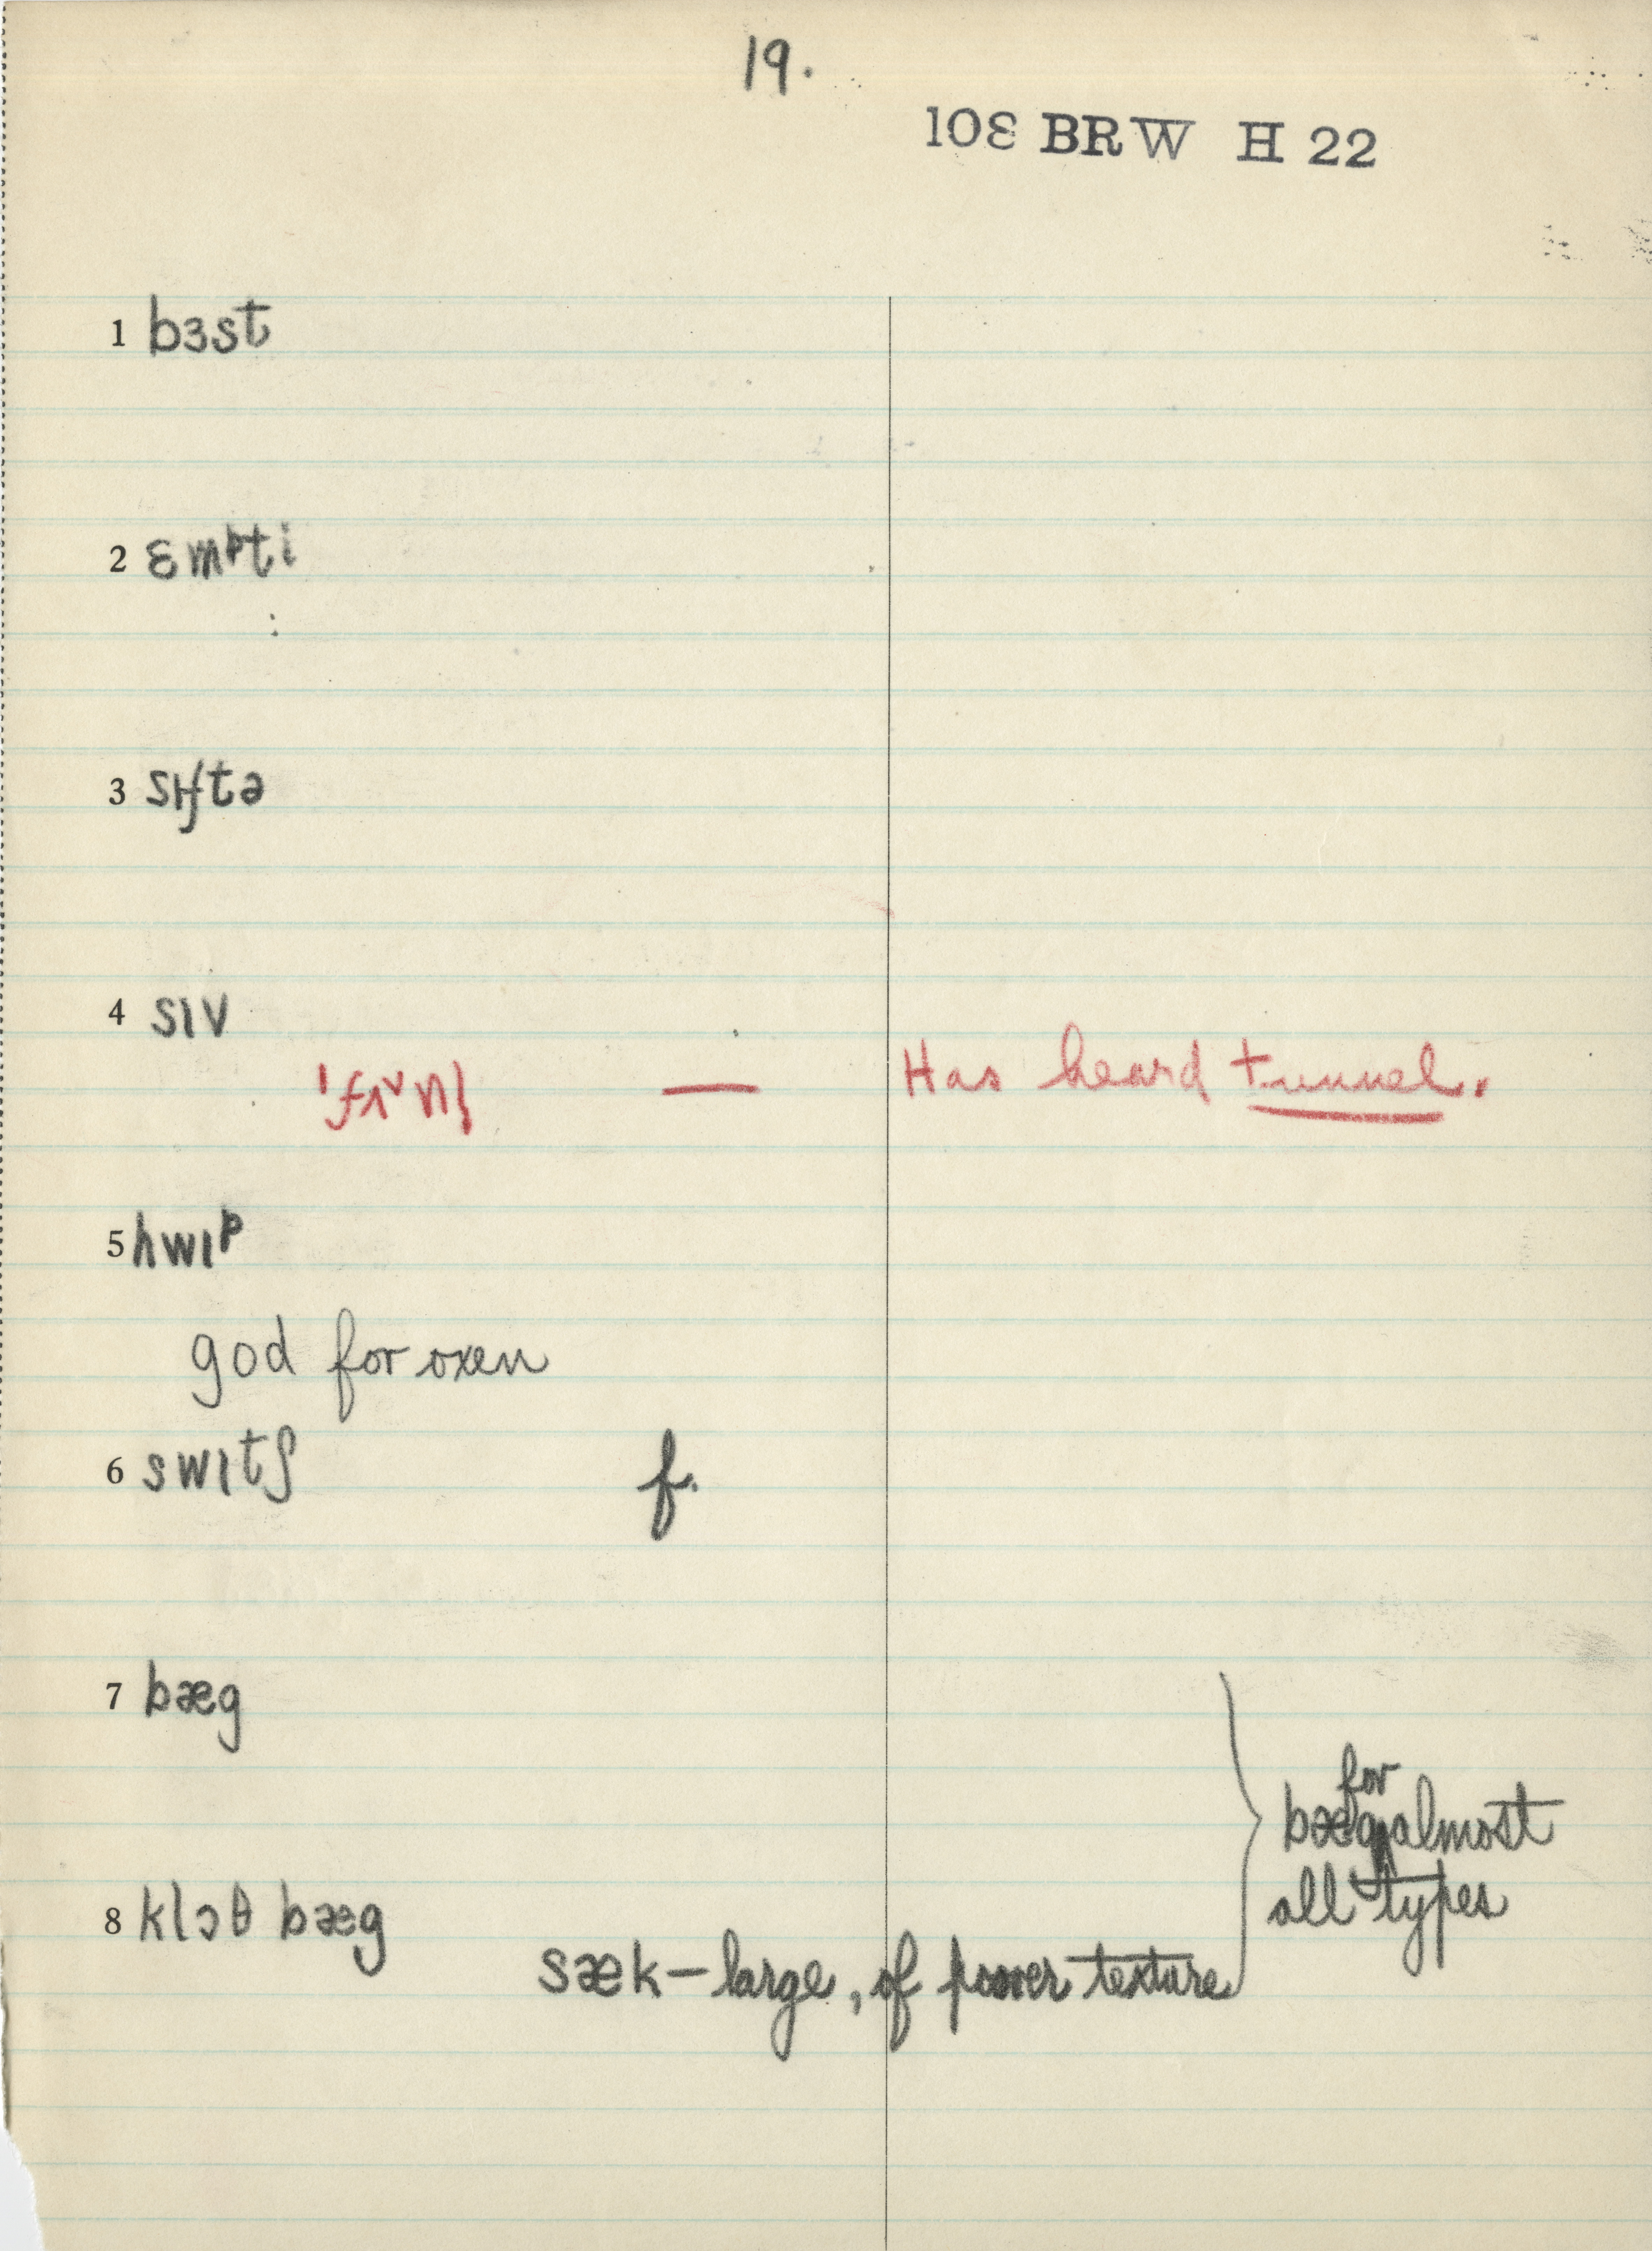 19.
108 BRW H 22
1 bɜst
2 ɛmᵖti
3 sɪftə
4 sɪv
'fʌᵛnl̩ — Has heard tunnel.
5 hwɪᵖ
god for oxen
6 swɪtʃ f.
7 bæg
for
bæg almost
all types
8 klɔθ bæg
sæk—large, of poorer texture